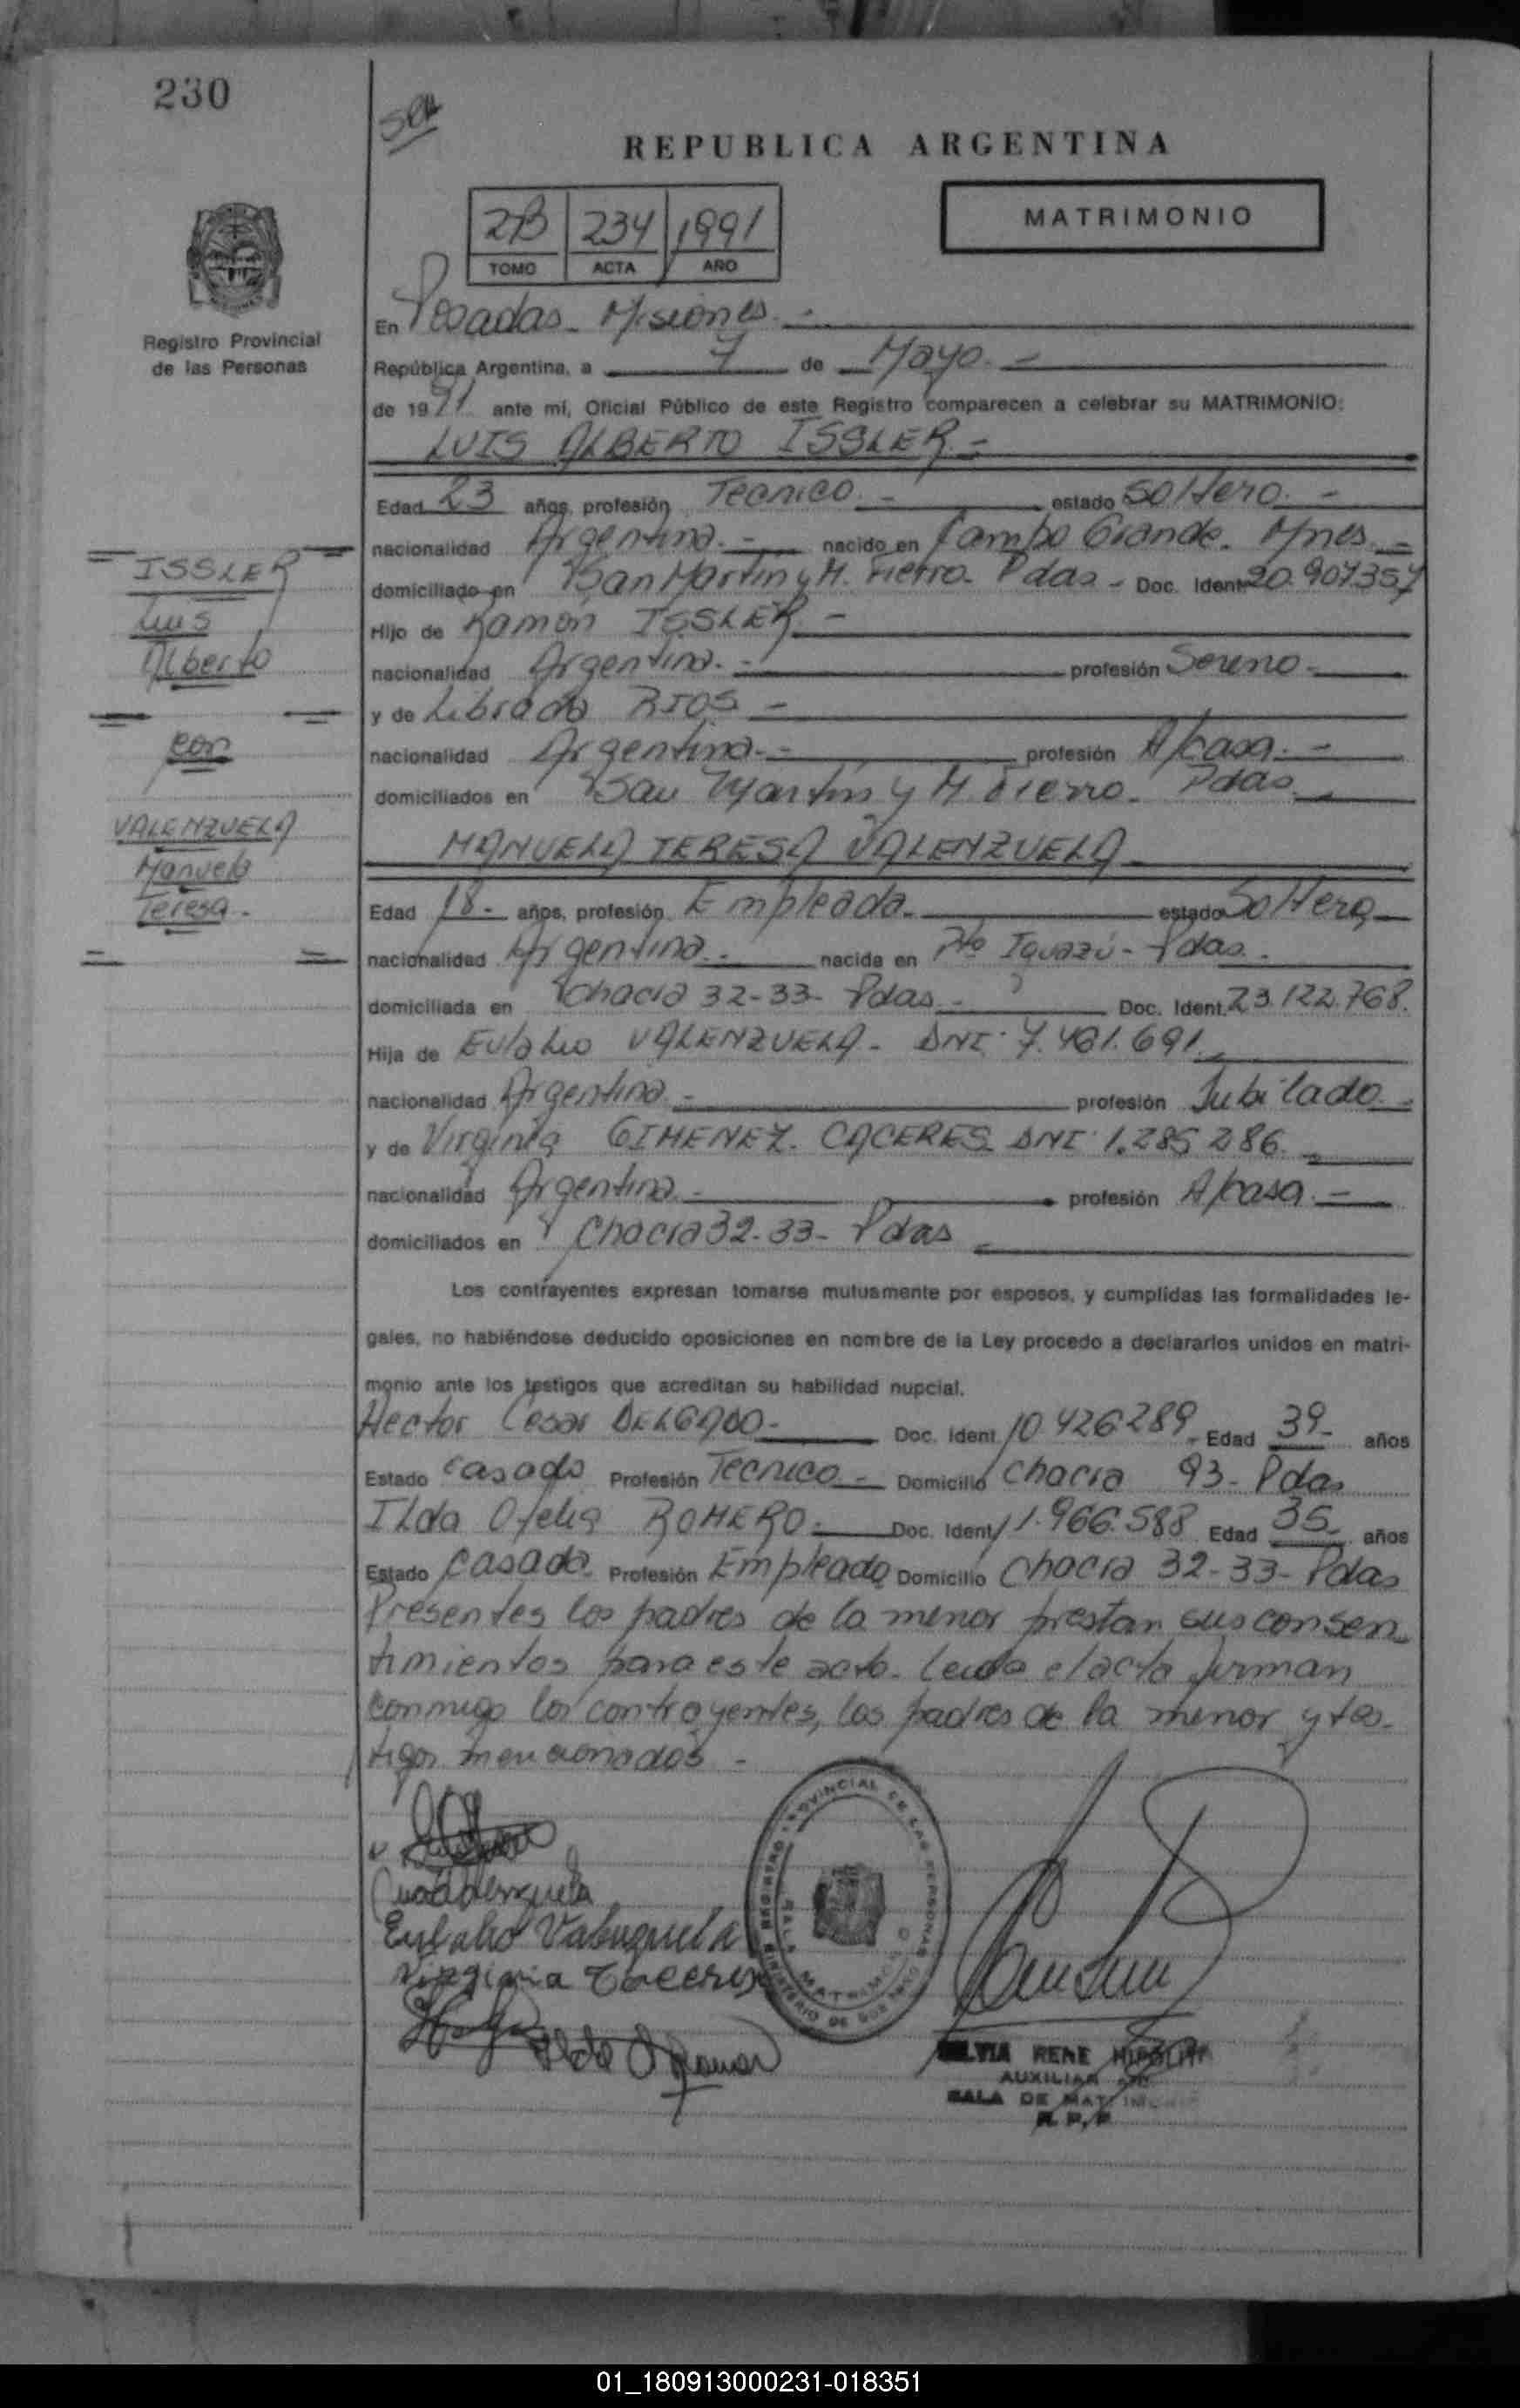 230
REPUBLICA ARGENTINA
2B 234 1991
TOMO ACTA AÑO
MATRIMONIO
Registro Provincial
de las Personas
En Posadas - Misiones. -
República Argentina, a 7 de Mayo. -
de 1991 ante mí, Oficial Público de este Registro comparecen a celebrar su MATRIMONIO:
LUIS ALBERTO ISSLER. -
Edad 23 años, profesión Tecnico. - estado Soltero. -
nacionalidad Argentina. - nacido en Campo Grande. Mnes. -
domiciliado en San Martin y M. Fierro. Pdas - Doc. Ident. 20.907.357
Hijo de Ramón ISSLER. -
nacionalidad Argentina. - profesión Sereno -
y de Librada RIOS -
nacionalidad Argentina. - profesión A/casa. -
domiciliados en San Martín y M. Fierro. Pdas.
ISSLER
Luis
Alberto
con
VALENZUELA
Manuela
Teresa.
MANUELA TERESA VALENZUELA
Edad 18 - años, profesión Empleada. estado Soltera
nacionalidad Argentina. - nacida en Pto Iguazú - Pdas. -
domiciliada en Chacra 32-33- Pdas - Doc. Ident. 23.122.768.
Hija de Eulalio VALENZUELA - DNI: 7.481.691
nacionalidad Argentina - profesión Jubilado. -
y de Virginia GIMENEZ. CACERES DNI: 1.285.286.
nacionalidad Argentina - profesión A/casa. -
domiciliados en Chacra 32-33- Pdas
Los contrayentes expresan tomarse mutuamente por esposos, y cumplidas las formalidades le-
gales, no habiéndose deducido oposiciones en nombre de la Ley procedo a declararlos unidos en matri-
monio ante los testigos que acreditan su habilidad nupcial.
Hector Cesar DELGADO - Doc. Ident. 10.426.289 Edad 39 - años
Estado casado Profesión Tecnico - Domicilio Chacra 93 - Pdas
Ilda Ofelia ROMERO. Doc. Ident. 11.966.588 Edad 35 años
Estado Casada Profesión Empleada Domicilio Chacra 32-33- Pdas
Presentes los padres de la menor prestan sus consen-
timientos para este acto. Leida el acta firman
conmigo los contrayentes, los padres de la menor y tes-
tigos mencionados -
Eulalio Valenzuela
REGISTRO PROVINCIAL DE LAS PERSONAS
MINISTERIO DE GOBIERNO
SALA MATRIMONIO
SILVIA RENE
AUXILIAR
SALA DE MATRIMONIO
R. P. P.
01_180913000231-018351